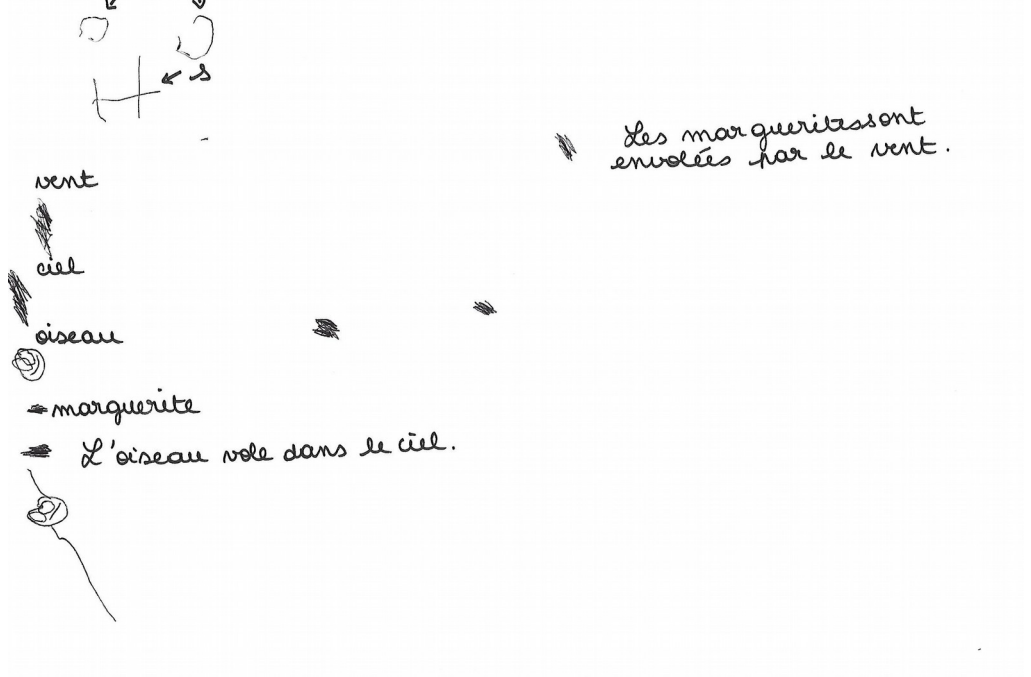 s
Les margueritessont
envolées par le vent.
vent
ciel
oiseau
marguerite
L'oiseau vole dans le ciel.